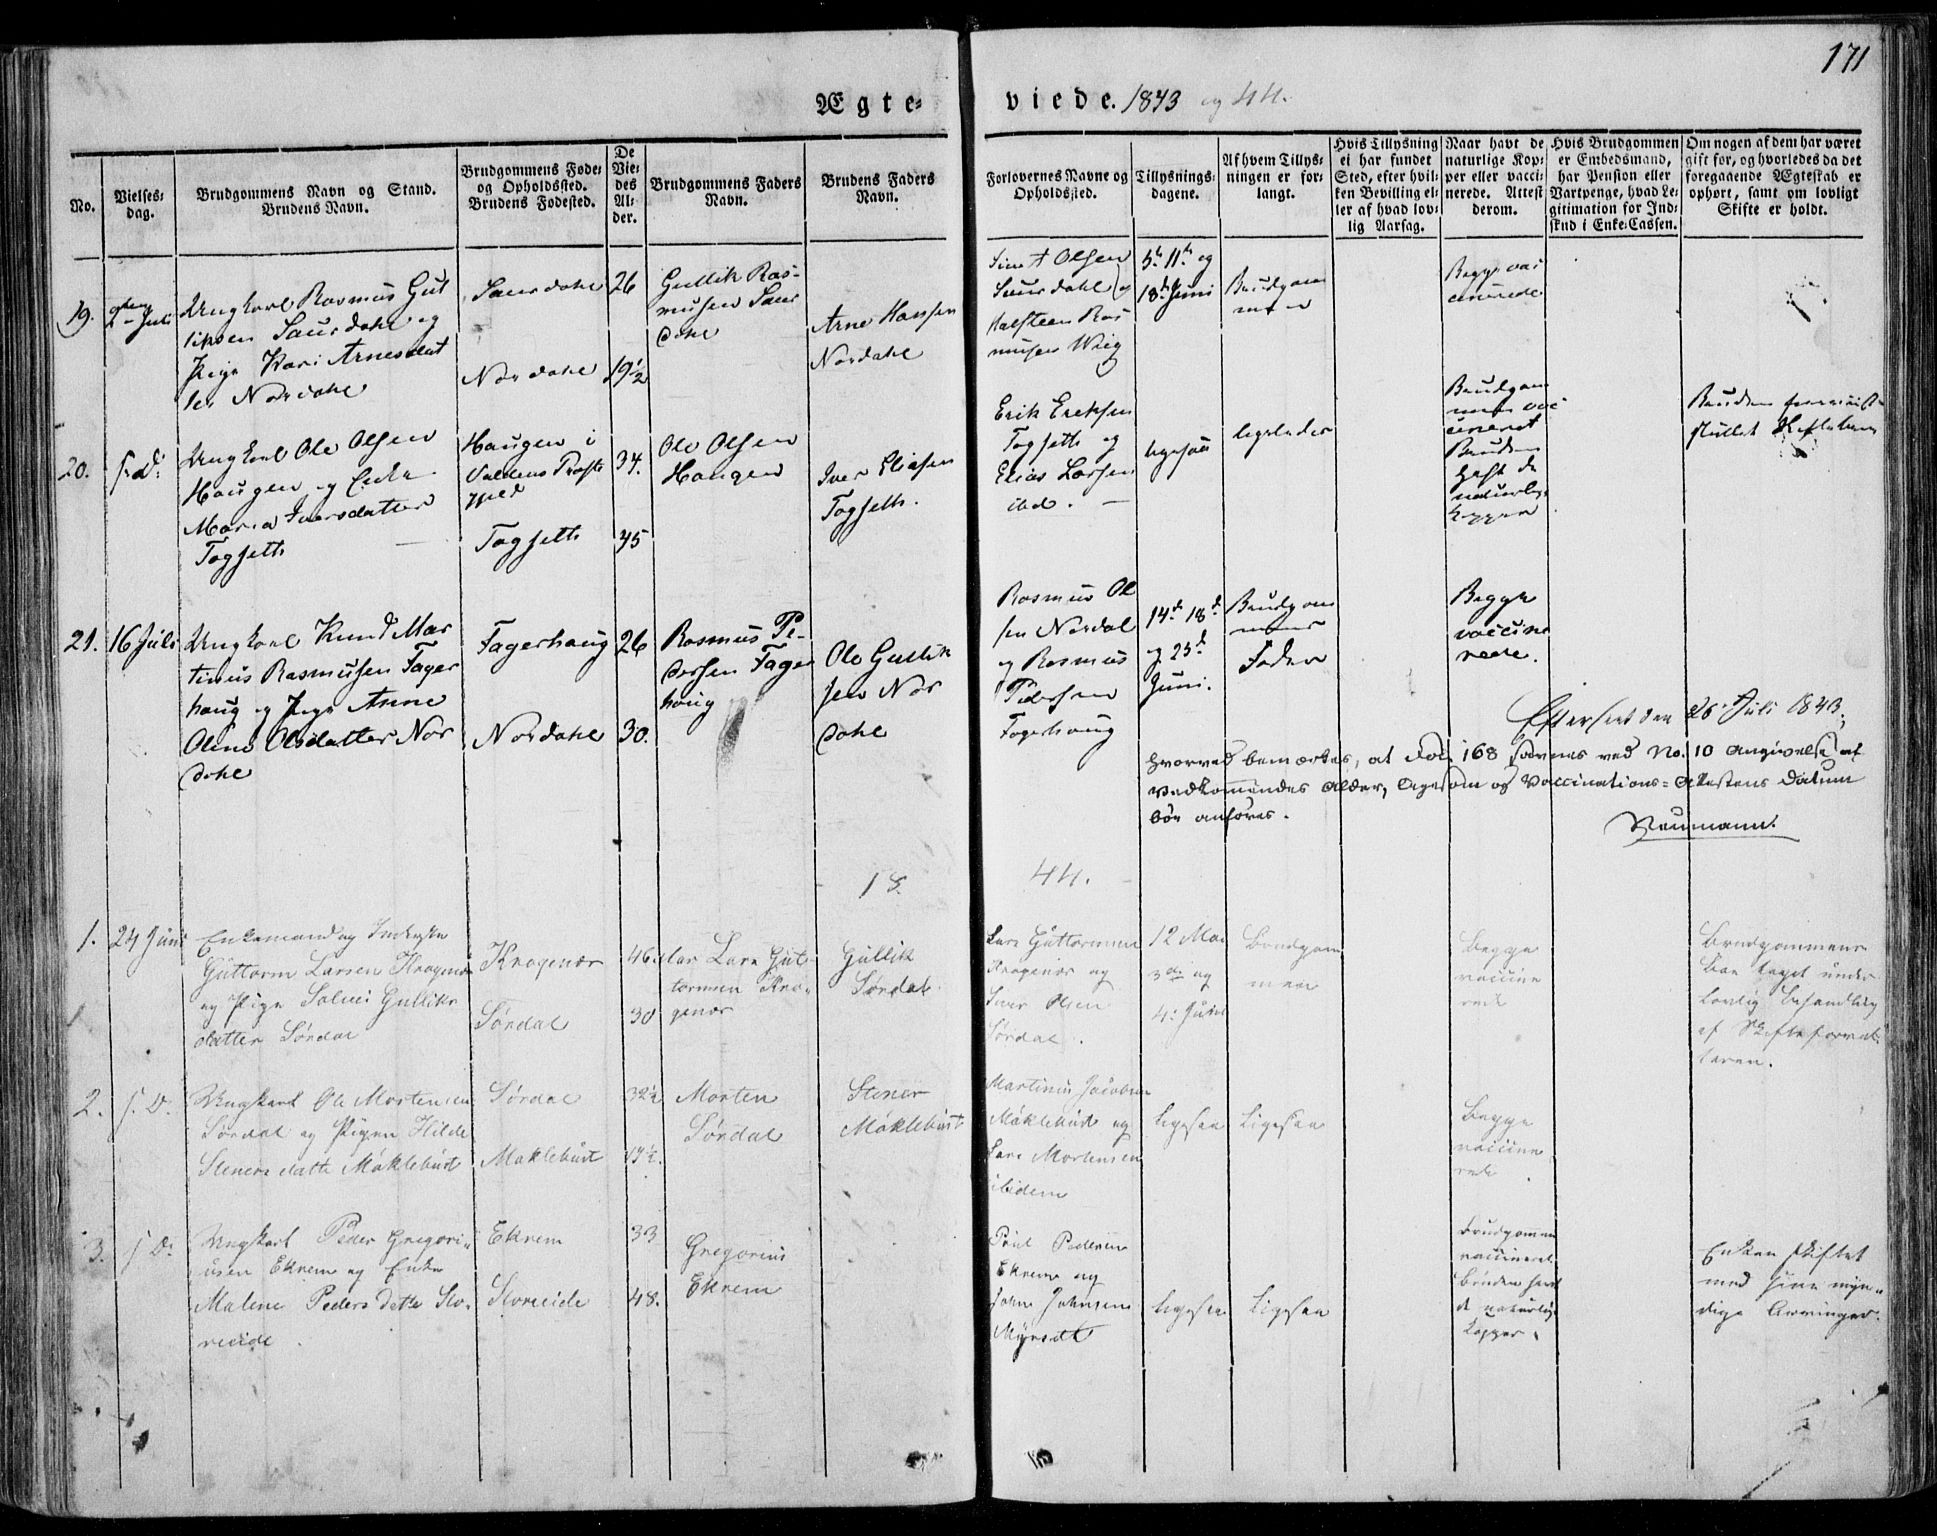 171
Ægte-
viede. 1843 og 44.
No.
Vielses-
dag.
Brudgommens Navn og Stand.
Brudens Navn.
Brudgommens Føde-
og Opholdssted.
Brudens Fødested.
De
Vie-
des
Al-
der.
Brudgommens Faders
Navn.
Brudens Faders
Navn.
Forlovernes Navne og
Opholdssted.
Tillysnings-
dagene.
Af hvem Tillys-
ningen er for-
langt.
Hvis Tillysning
ei har fundet
Sted, efter hvil-
ken Bevilling el-
ler af hvad lov-
lig Aarsag.
Naar havt de
naturlige Kop-
per eller vacci-
nerede. Attest
derom.
Hvis Brudgommen
er Embedsmand,
har Pension eller
Vartpenge, hvad Le-
gitimation for Ind-
skud i Enke-Cassen.
Om nogen af dem har været
gift før, og hvorledes da det
foregaaende Ægteskab er
ophørt, samt om lovligt
Skifte er holdt.
19.
Juli
Ungkarl Rasmus Gul
liksen Saurdahl og
Pige Kari Arnesdat
ter Nordahl
Saurdahl
Nordahl
26
19½
Gullik Ras-
musen Saur
dahl
Arne Hansen
Nordahl
Olsen
Saurdahl og
Halsteen Ras
musen Wiig
5te 11te og
18de Juni
Brudgom
men
Begge vac
cinerede
20.
s. D.
Ungkarl Ole Olsen
Haugen og Enke
Maria Iversdatter
Togseth
Haugen i
Præste
gjeld
Togseth
34.
45
Ole Olsen
Haugen
Iver Eliasen
Togseth.
Erik Eriksen
Togseth og
Elias Larsen
ibd.
ligesaa
ligeledes
Brudgom
men vac
cineret
Bruden
havt de
naturlige
Kopper
Bruden
21.
16 Juli
Ungkarl Knud Mar
tinus Rasmusen Fager
haug og Pige Anne
Oline Olsdatter Nor
dahl
Fagerhaug
Nordahl
26
30.
Rasmus Pe-
dersen Fager
haug
Ole Gullik
sen Nor
dahl
Rasmus Ol
sen Nordal
og Rasmus
Pedersen
Fagerhaug
14de 18de
og 25de
Juni.
Brudgom
mens
Fader
Begge
vaccine
rede.
Efterseet den 26 Juli 1843,
hvorved bemærkes, at Fol. 168 savnes ved No. 10 Angivelse af
Vedkommendes Alder, ligesom og Vaccinations-Attestens Datum
bør anføres.
Neumann.
18 44.
1.
24 Juni
Enkemand og Inderste
Guttorm Larsen Kragenær
og Pige Solvei Gulliks
datter Sørdal
Kragenær
Sørdal
46
30
Lars Gut-
tormsen Kra-
genær
Gullik
Sørdal.
Lars Guttormsen
Kragenær og
Iver Olsen
Sørdal.
12 Mai
3die og
4. Juni
Brudgom
men
Begge
vaccine
rede
Brudgommens
Boe taget under
lovlig Behandling
af Skifteforval-
teren.
2.
s. D.
Ungkarl Ole Mortensen
Sørdal og Pigen Hilde
Steners datte Møklebust
Sørdal
Møklebust
32½
Morten
Sørdal
Stener
Møklebust
Martinus Jacobsen
Møklebust og
Lars Mortensen
ibidem
ligesaa
Ligesaa
Begge
vaccine
rede.
3.
s D.
Ungkarl Peder Gregori-
usen Ekrem og Enke
Malene Peders datte Sto-
reeide.
Ekrem
Storeeide
33
48.
Gregorius
Ekrem
Poul Pedersen
Ekrem og
John Johnsen
ligesaa
Ligesaa
Brudgommen
vaccineret
Bruden havt
de naturlige
Kopper.
Enken skiftet
med sine myn-
dige Arvinger.